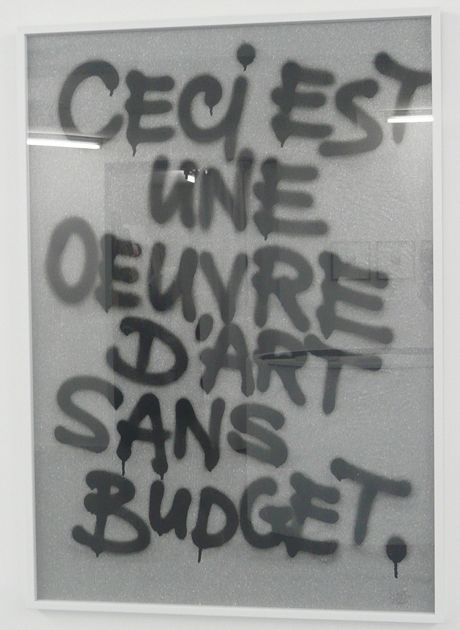 CECi EST
UNE
OEUVRE
D'ART
SANS
BUDGET.